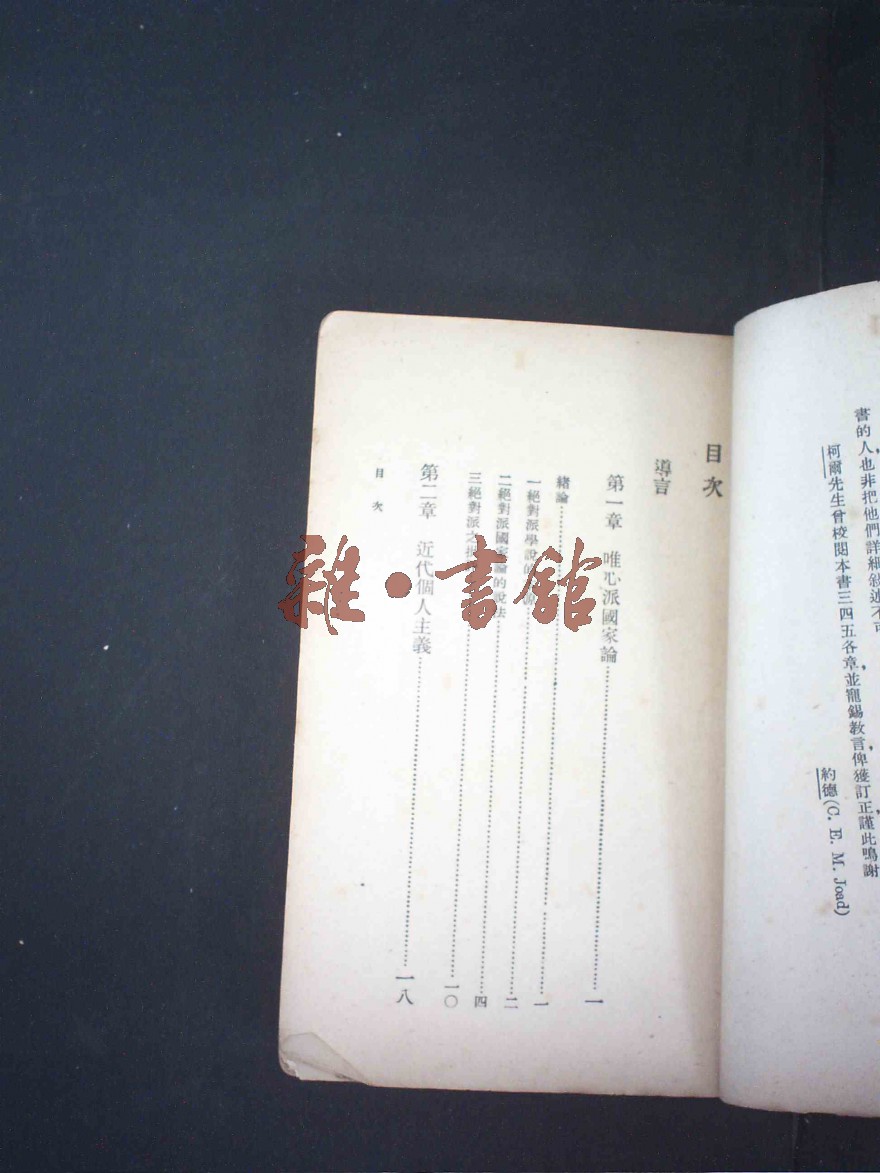 書的人也非把他們詳細敍述不可
柯爾先生曾校閱本書三四五各章，並寵錫教言，俾獲訂正，謹此鳴謝
約德(C. E. M. Joad)
目次
導言
第一章 唯心派國家論……一
緒論……一
一絕對派學說的……二
二絕對派國家論的說法……四
三絕對派之……一〇
第二章 近代個人主義……一八
目次
雜·書館